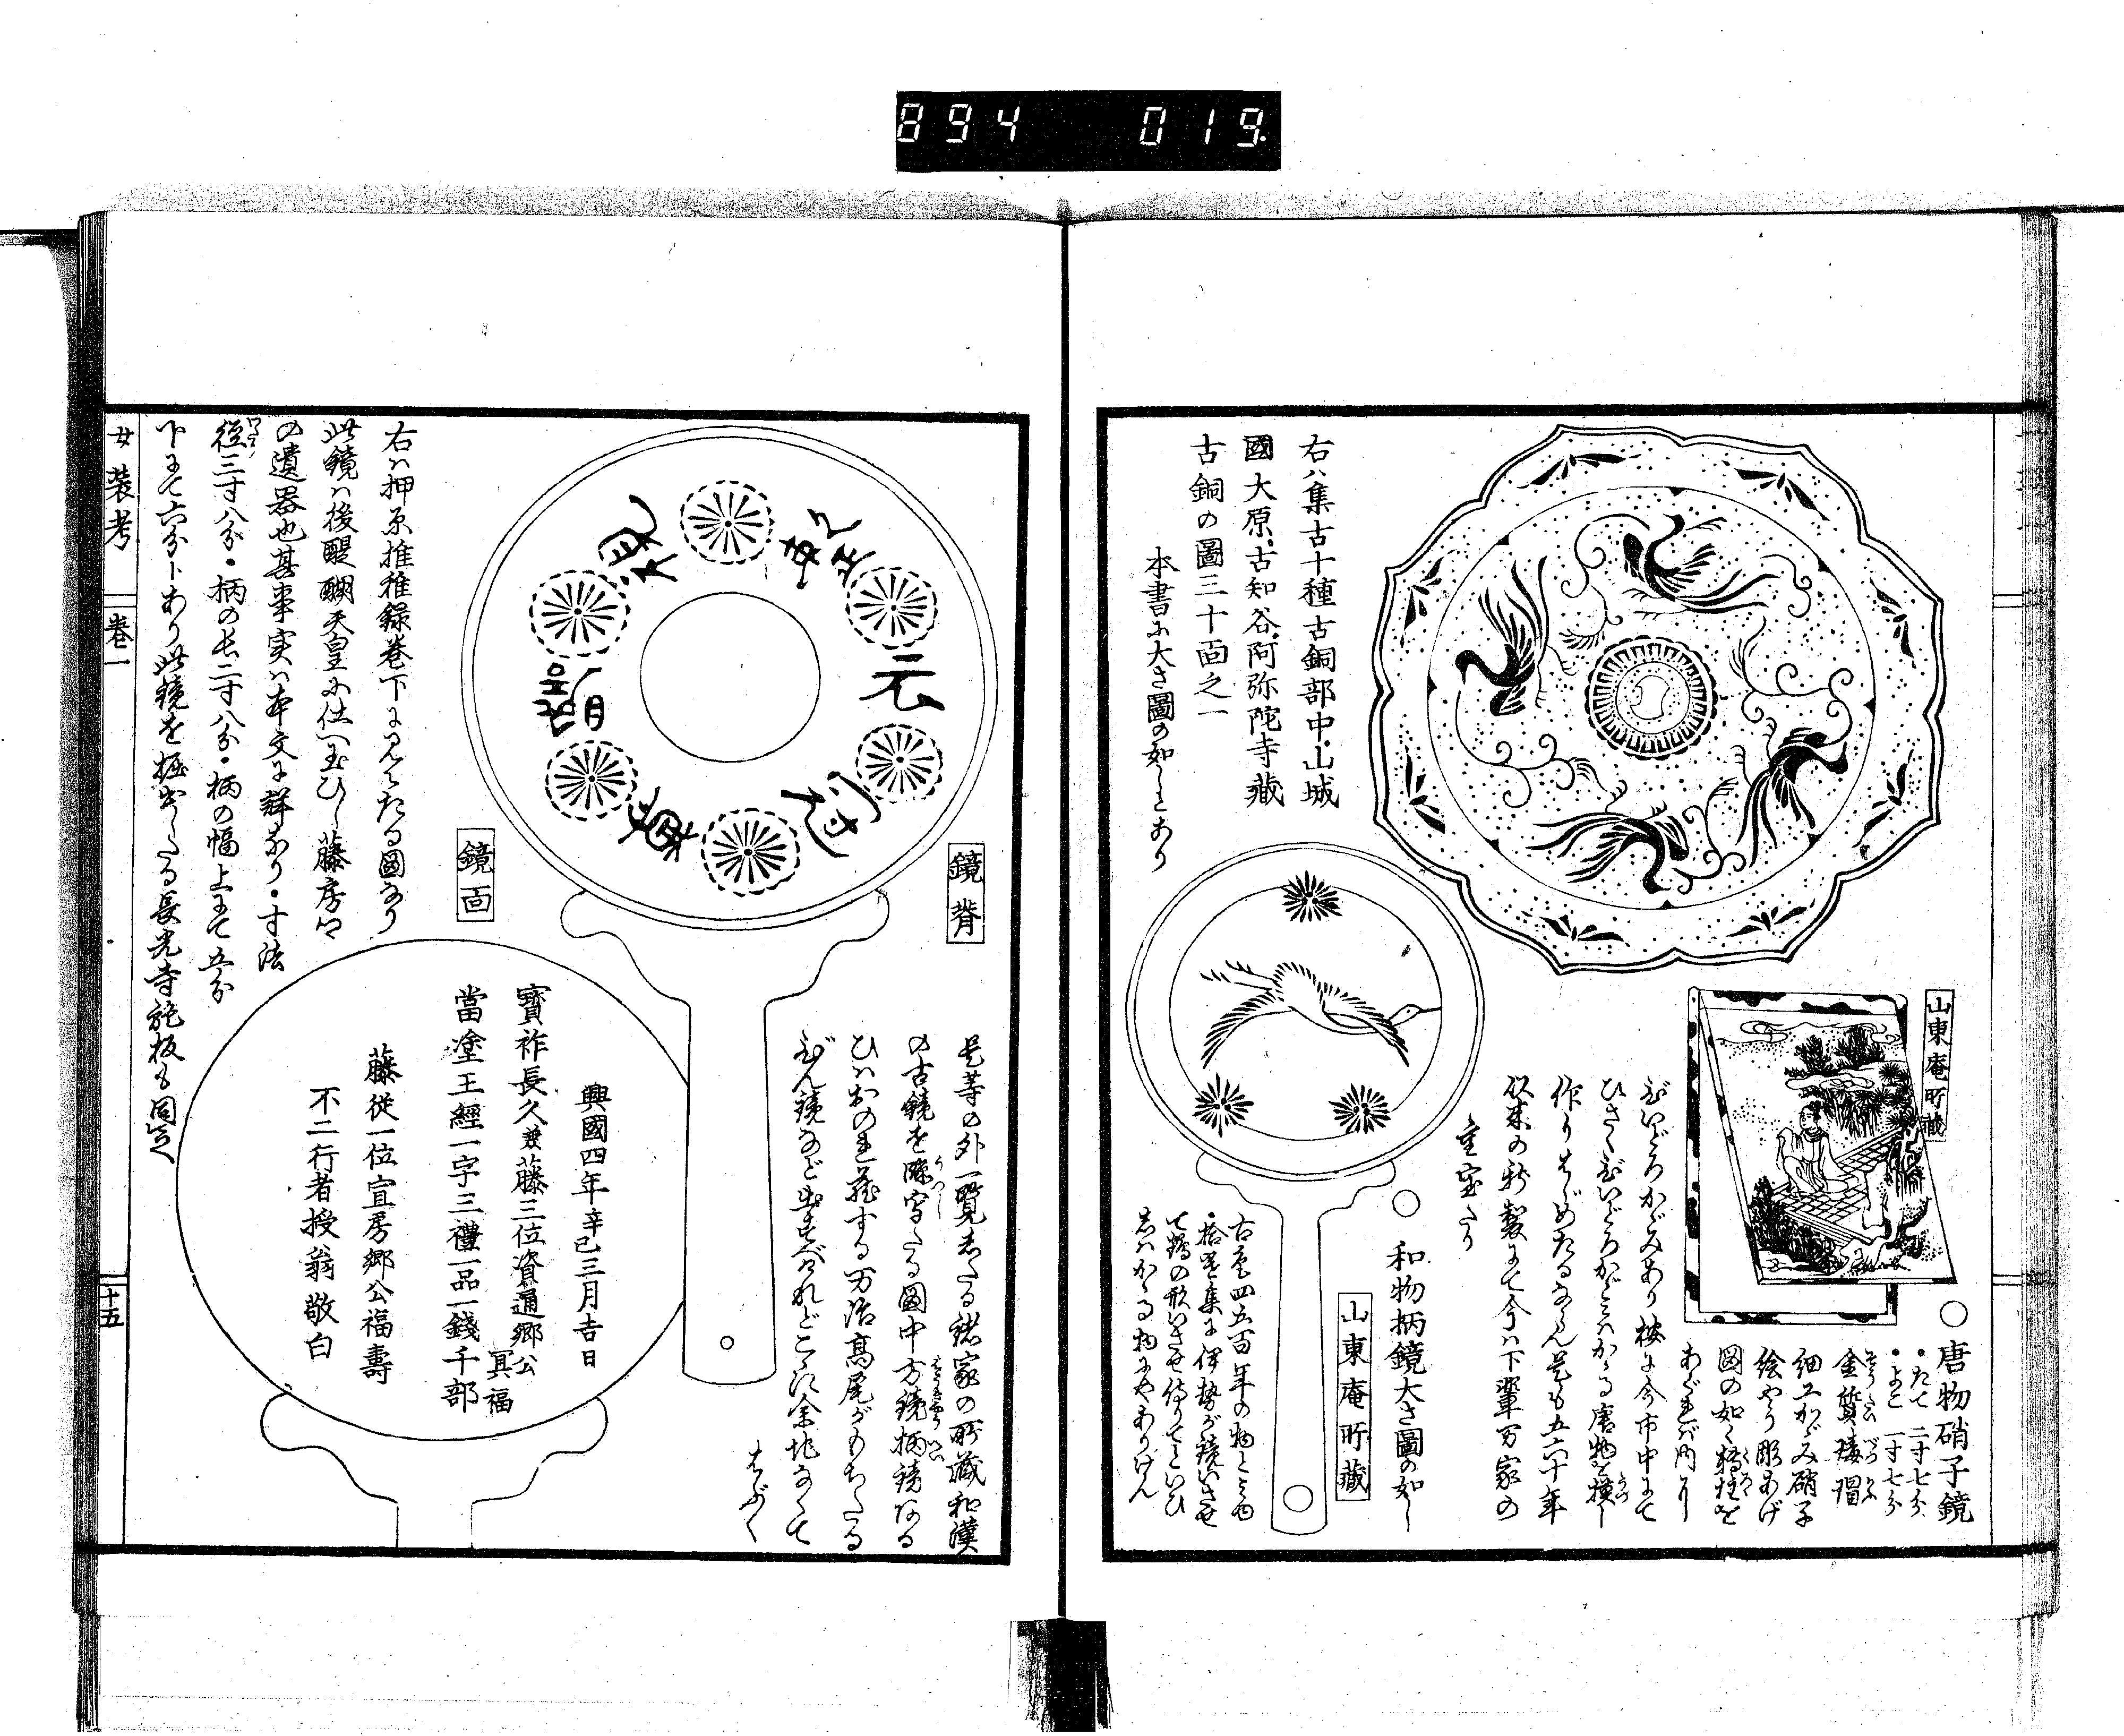 894 019
右ハ集古十種古銅部中山城
國大原古知谷阿弥陀寺藏
古銅の圖三十面之一
本書に大さ圖の如しとあり
山東庵所藏
○唐物硝子鏡
・たて二寸七分
・よこ一寸七分
細工かゞみ硝子
絵やう彫あげ
図の如く
びいどろかゞみあり按に今市中にて
ひさくびいどろかゞみハかゝる唐物を摸し
作りはじめたるならん是も五六十年
以来の新製にて今ハ下輩万家の
重宝たり
○和物柄鏡大さ圖の如し
山東庵所藏
古色四五百年の物とみゆ
拾遺集に伊勢が鏡いさせ
て鶴の形いさせ侍りてといひ
しハかゝる物にやありけん
鏡背
元
鏡面
右ハ押原推移録巻下に見えたる図なり
此鏡ハ後醍醐天皇に仕へ玉ひし藤房卿
の遺器也其事実ハ本文に詳なり・寸法
径三寸八分・柄の長二寸八分・柄の幅上にて五分
下にて六分トあり此鏡を掘出したる長光寺施板も同じ
是等の外一覧したる諸家の所藏和漢
の古鏡を謄写したる図中方鏡柄鏡ある
ひハおのれ藏する万治高尾がもちたる
びん鏡など出すべけれどこゝに余地なくて
はぶく
興國四年辛巳三月吉日
寳祚長久兼藤三位資通郷公
冥福
當塗王經一字三禮一品一錢千部
藤従一位宣房郷公福壽
不二行者授翁敬白
女装考
巻一
十五